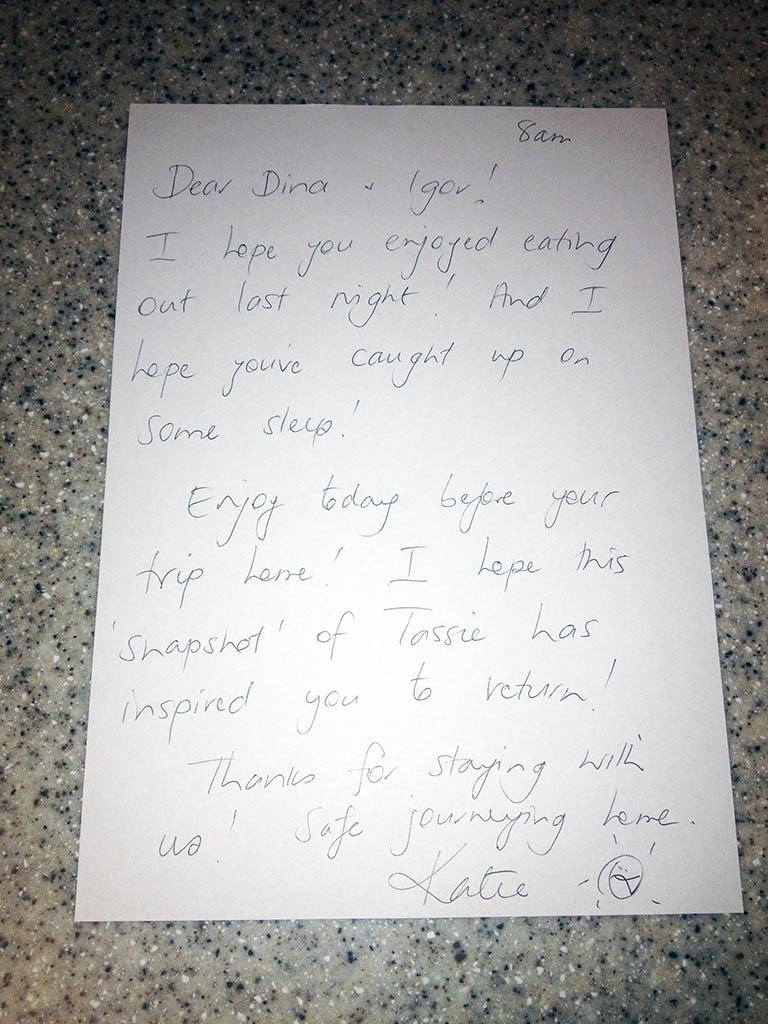 8am
Dear Dina & Igor!
I hope you enjoyed eating
out last night! And I
hope you've caught up on
some sleep!
Enjoy today before your
trip home! I hope this
'snapshot' of Tassie has
inspired you to return!
Thanks for staying with
us! Safe journeying home.
Katie